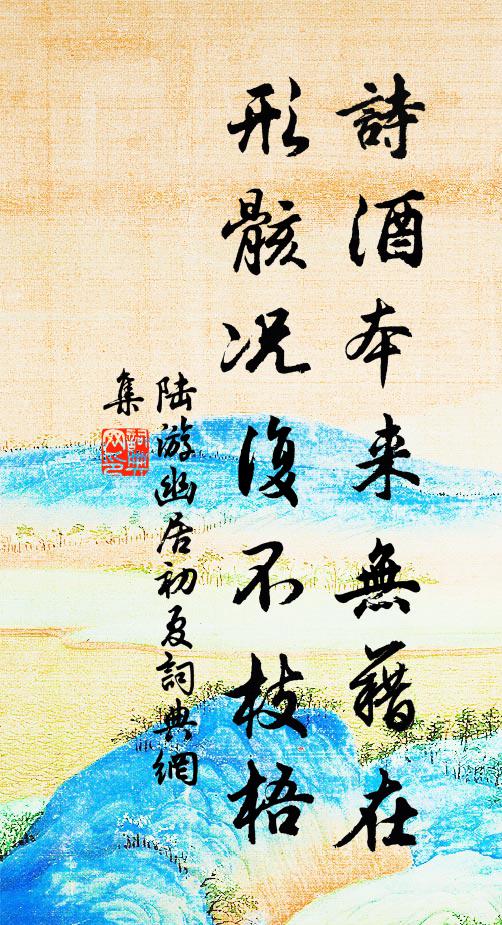 詩酒本来無籍在
形骸况復不枝梧
陆游幽居初夏詞典網
集